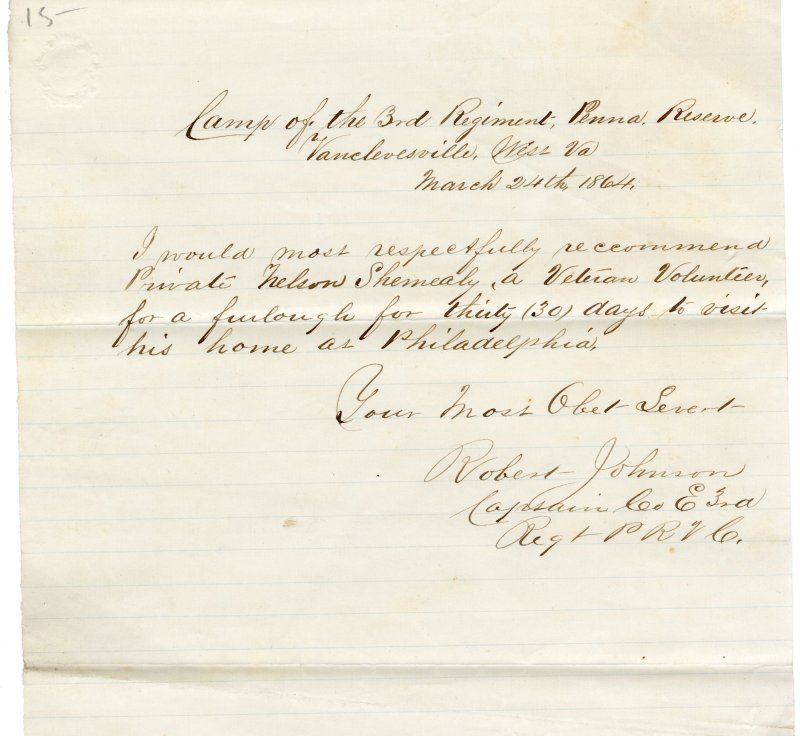 15-
Camp of the 3rd Regiment, Penna. Reserve.
Vanclevesville, West Va
March 24th, 1864.
I would most respectfully reccommend
Private Nelson Shemealy, a Veteran Volunteer,
for a furlough for thirty (30) days to visit
his home at Philadelphia,
Your Most Obet Servt
Robert Johnson
Captain Co E 3rd
Regt P R V C.